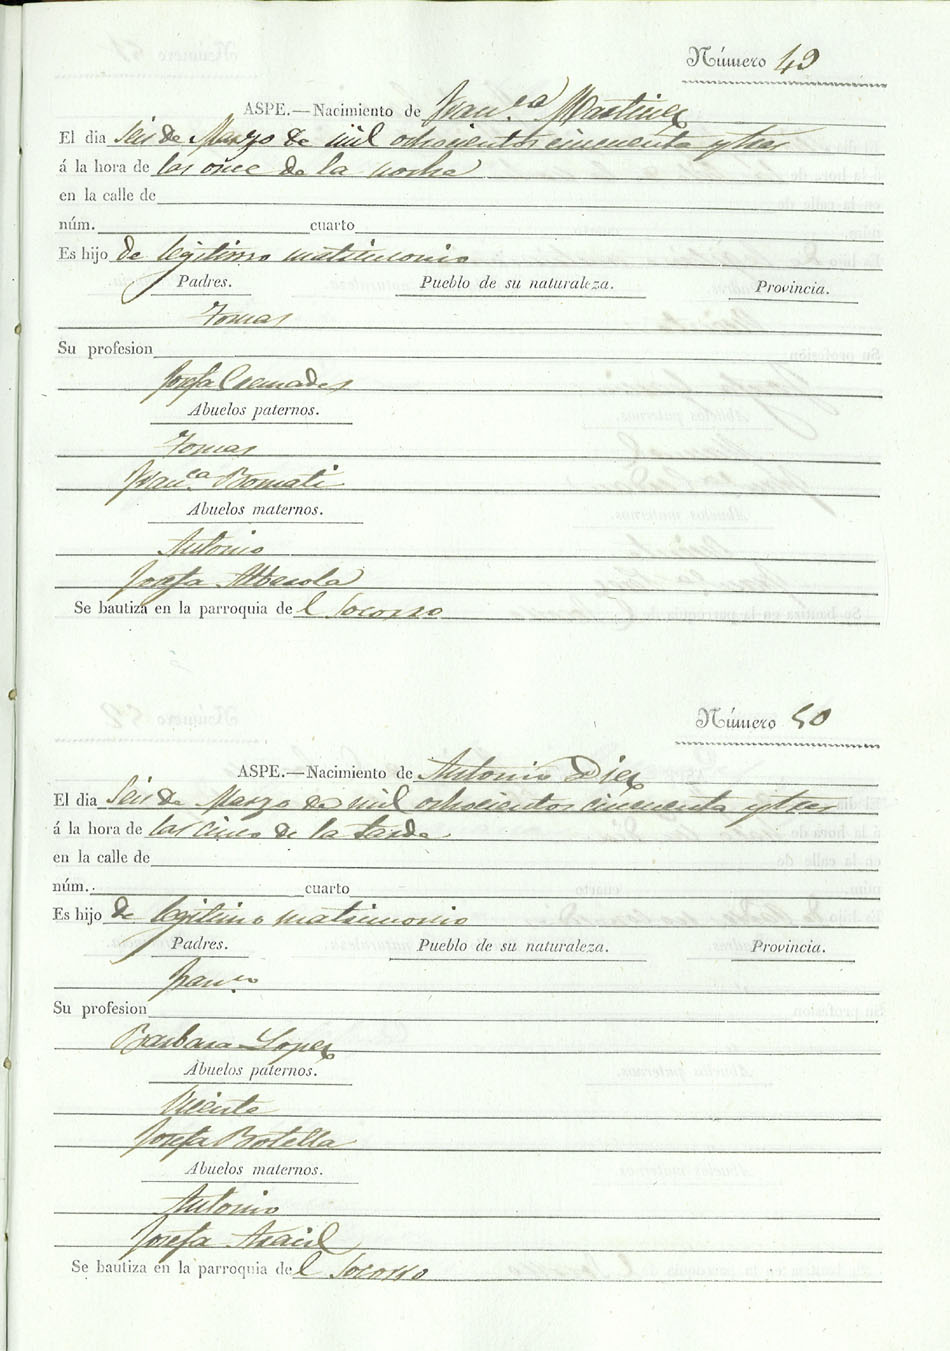 Número 49
ASPE.—Nacimiento de Fran.ca Martinez
El dia seis de Marzo de mil ochocientos cincuenta y tres
á la hora de las once de la noche
en la calle de
núm. cuarto
Es hijo de legitimo matrimonio
Padres. Pueblo de su naturaleza. Provincia.
Tomas
Su profesion
Josefa Cremades
Abuelos paternos.
Tomas
Fran.ca Bomati
Abuelos maternos.
Antonio
Josefa Alberola
Se bautiza en la parroquia del Socorro
Número 50
ASPE.—Nacimiento de Antonio Diez
El dia Seis de Marzo de mil ochocientos cincuenta y tres
á la hora de las cinco de la tarde
en la calle de
núm. cuarto
Es hijo de legitimo matrimonio
Padres. Pueblo de su naturaleza. Provincia.
Fran.co
Su profesion
Barbara Lopez
Abuelos paternos.
Vicente
Josefa Botella
Abuelos maternos.
Antonio
Josefa Azacil
Se bautiza en la parroquia del Socorro